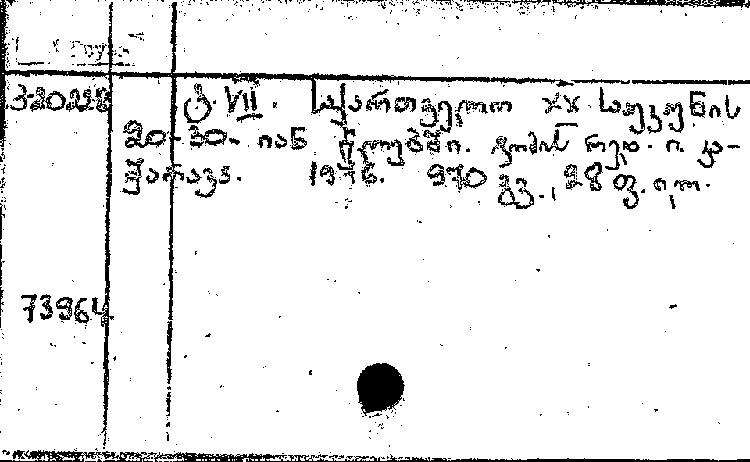 პ-20228
ტ. VII. საქართველო XX საუკუნის
20-30-იან წლებში. ტომის რედ. ი. კა-
ჭარავა. 1976. 970 გვ., 28 ფ. ილ.
73964